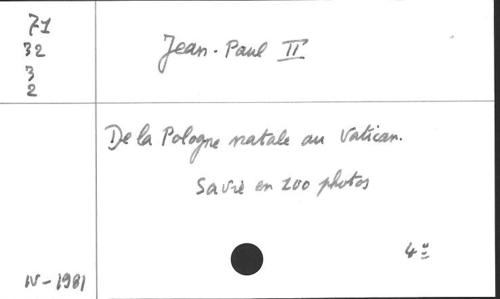 71
32
3
2
Jean-Paul II
De la Pologne natale au Vatican.
Sa vie en 200 photos
4º
IV-1981